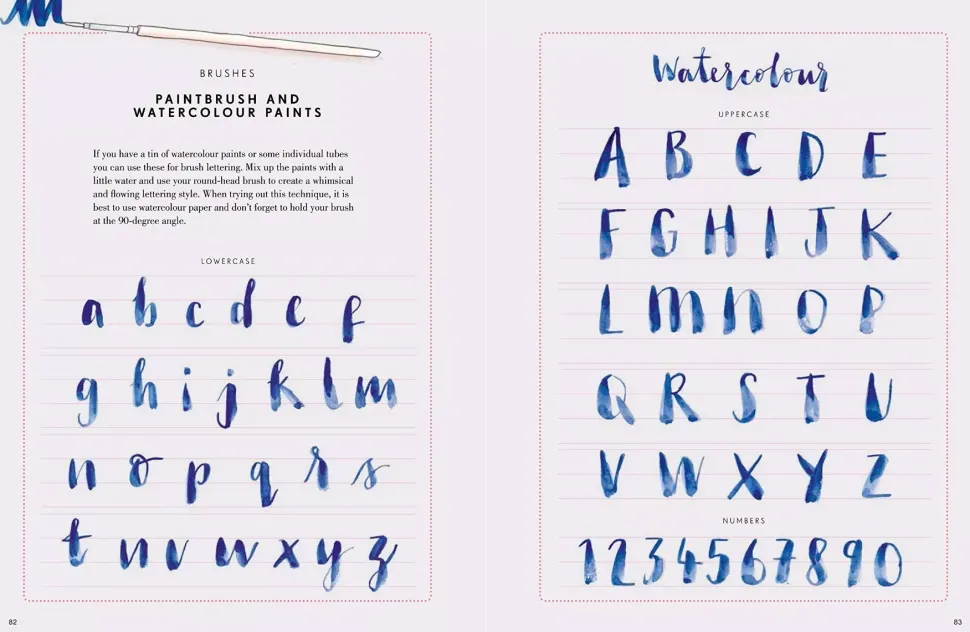 BRUSHES
PAINTBRUSH AND
WATERCOLOUR PAINTS
If you have a tin of watercolour paints or some individual tubes
you can use these for brush lettering. Mix up the paints with a
little water and use your round-head brush to create a whimsical
and flowing lettering style. When trying out this technique, it is
best to use watercolour paper and don't forget to hold your brush
at the 90-degree angle.
LOWERCASE
a b c d e f
g h i j k l m
n o p q r s
t u v w x y z
82
Watercolour
UPPERCASE
A B C D E
F G H I J K
L M N O P
Q R S T U
V W X Y Z
NUMBERS
1 2 3 4 5 6 7 8 9 0
83